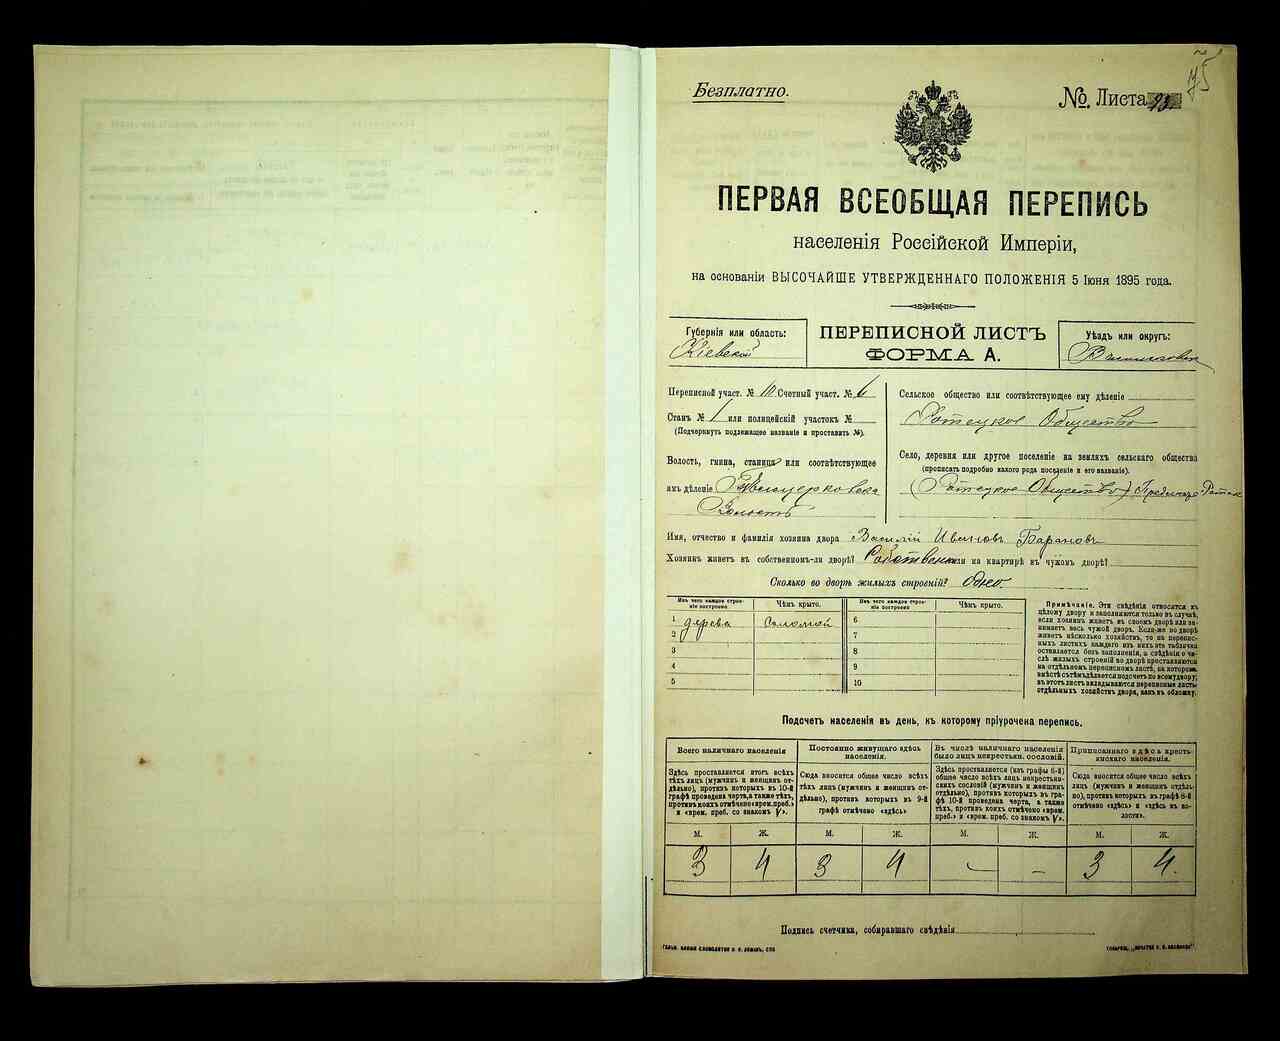 75
Безплатно.
№ Листа 93
ПЕРВАЯ ВСЕОБЩАЯ ПЕРЕПИСЬ
населенія Россійской Имперіи,
на основаніи ВЫСОЧАЙШЕ УТВЕРЖДЕННАГО ПОЛОЖЕНІЯ 5 Іюня 1895 года.
Губернія или область:
Кіевской
ПЕРЕПИСНОЙ ЛИСТЪ
ФОРМА А.
Уѣздъ или округъ:
Переписной участ. № 10 Счетный участ. № 6
Станъ № 1 или полицейскій участокъ №
(Подчеркнуть подлежащее названіе и проставить №).
Волость, гмина, станица или соотвѣтствующее
имъ дѣленіе
Волость
Сельское общество или соотвѣтствующее ему дѣленіе
Ротецкое Общество
Село, деревня или другое поселеніе на земляхъ сельскаго общества
(прописать подробно какого рода поселеніе и его названіе).
(Ротецкое Общество)
Имя, отчество и фамилія хозяина двора Василій Ивановъ Барановъ
Хозяинъ живетъ въ собственномъ-ли дворѣ? или на квартирѣ въ чужомъ дворѣ?
Сколько во дворѣ жилыхъ строеній? Одно.
Изъ чего каждое строеніе построено
Чѣмъ крыто.
Изъ чего каждое строеніе построено
Чѣмъ крыто.
1 дерева Соломой 6
2 7
3 8
4 9
5 10
Примѣчаніе. Эти свѣдѣнія относятся къ
цѣлому двору и заполняются только въ случаѣ,
если хозяинъ живетъ въ своемъ дворѣ или занимаетъ
весь чужой дворъ. Если-же во дворѣ
живетъ нѣсколько хозяйствъ, то на переписныхъ
листахъ каждаго изъ нихъ эта табличка
оставляется безъ заполненія, а свѣдѣнія о числѣ
жилыхъ строеній во дворѣ проставляются
на отдѣльномъ переписномъ листѣ, на которомъ
вмѣстѣ съ тѣмъ дѣлается подсчетъ по всему двору;
въ этотъ листъ вкладываются переписные листы
отдѣльныхъ хозяйствъ двора, какъ въ обложку.
Подсчетъ населенія въ день, къ которому пріурочена перепись.
Всего наличнаго населенія
Здѣсь проставляется итогъ всѣхъ
тѣхъ лицъ (мужчинъ и женщинъ отдѣльно),
противъ которыхъ въ 10-й
графѣ проведена черта, а также тѣхъ,
противъ коихъ отмѣчено «врем. преб.»
и «врем. преб. со знакомъ V».
Постоянно живущаго здѣсь
населенія.
Сюда вносится общее число всѣхъ
тѣхъ лицъ (мужчинъ и женщинъ отдѣльно),
противъ которыхъ въ 9-й
графѣ отмѣчено «здѣсь»
Въ числѣ наличнаго населенія
было лицъ некрестьян. сословій.
Здѣсь проставляется (изъ графы 6-й)
общее число всѣхъ лицъ некрестьянскихъ
сословій (мужчинъ и женщинъ
отдѣльно), противъ которыхъ въ графѣ
10-й проведена черта, а также
тѣхъ, противъ коихъ отмѣчено «врем.
преб.» и «врем. преб. со знакомъ V».
Приписаннаго здѣсь крестьянскаго
населенія.
Сюда вносится общее число всѣхъ
лицъ (мужчинъ и женщинъ отдѣльно),
противъ которыхъ въ графѣ 8-й
отмѣчено «здѣсь» и «здѣсь въ волости».
М. Ж. М. Ж. М. Ж. М. Ж.
3 4 3 4 – – 3 4.
Подпись счетчика, собиравшаго свѣдѣнія